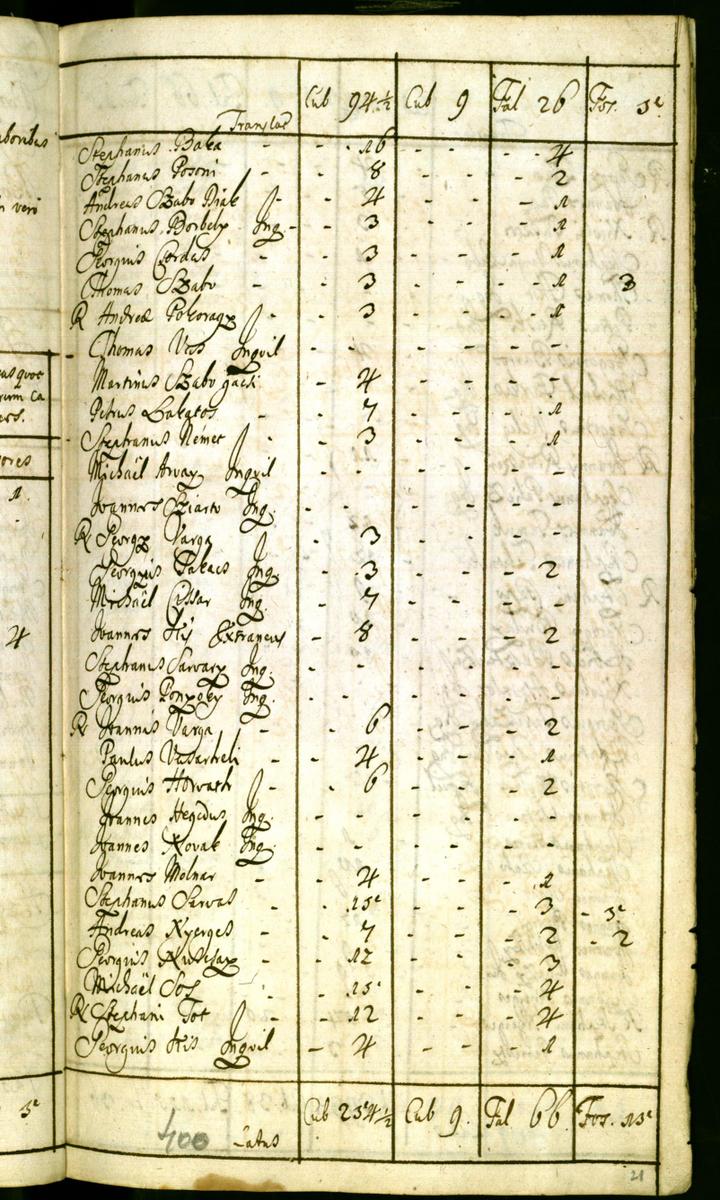 Cub 94½ Cub 9 Fal 26 Fos. 5
Translat
Stephanus Baka - - 16 - - - - 4
Stephanus Posoni - - 8 - - - - 2
Andreas Szabo Diak - - 4 - - - 1
Stephanus Borbely Inq - - 3 - - - 1
Georgius Cserdas - - 3 - - - 1
Thomas Szabo - - 3 - - - 1 3
R Andreæ Pokoragy - - 3 - - - 1
Thomas Vos Inquil - - - - - -
Martinus Szabo - 4 - - - -
Petrus Lakatos - - 7 - - - 1
Stephanus Német - - 3 - - - 1
Michaël Arvay Inquil - - - - - -
Joannes Inq. - - - - - -
R Georgy Varga - 3 - - - -
Georgius Takacs Inq. - 3 - - - 2
Michaël Inq. - 7 - - - -
Joannes Kis Extraneus - 8 - - - 2
Stephanus Sarvary Inq. - - - - - -
Georgius Inq. - - - - - -
R Joannis Varga - - 6 - - - 2
Paulus Vasarheli - - 4 - - - 1
Georgius Horvath - - 6 - - - 2
Joannes Hegedus Inq. - - - - - -
Joannes Novak Inq. - - - - - -
Joannes Molnar - - 4 - - - 1
Stephanus Sarvas - - 15 - - - 3 - 5
Andreas Nyerges - - 7 - - - 2 - 2
Georgius - - 12 - - - 3
Michaël Sos - 15 - - - 4
R Stephani Tot - - 12 - - - 4
Georgius Kis Inquil - 4 - - - 1
Latus Cub 254½ Cub 9. Fal 66 Fos. 15
400
21
aboribus
veri
1.
4
5